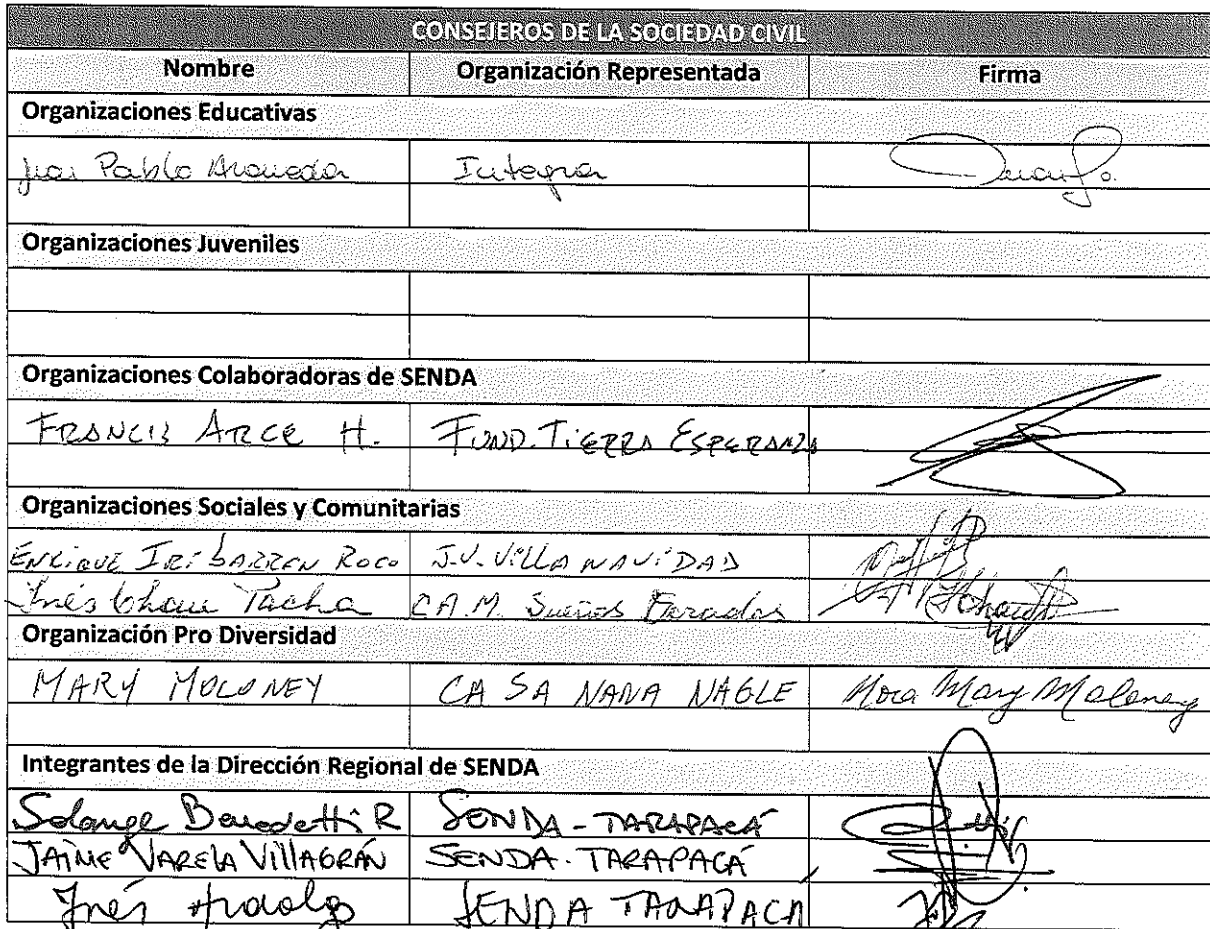 CONSEJEROS DE LA SOCIEDAD CIVIL
Nombre Organización Representada Firma
Organizaciones Educativas
Juan Pablo Araneda Integra
Organizaciones Juveniles
Organizaciones Colaboradoras de SENDA
FRANCIS ARCE H. FUND. TIERRA ESPERANZA
Organizaciones Sociales y Comunitarias
ENRIQUE IRIBARREN ROCO J.V. VILLA NAVIDAD
Inés Chau Pacha C.A.M. Sueños
Organización Pro Diversidad
MARY MOLONEY CASA NANA NAGLE Nora Mary Moloney
Integrantes de la Dirección Regional de SENDA
Solange Benedetti R SENDA - TARAPACÁ
JAIME VARELA VILLAGRÁN SENDA. TARAPACÁ
Inés Hidalgo SENDA TARAPACÁ